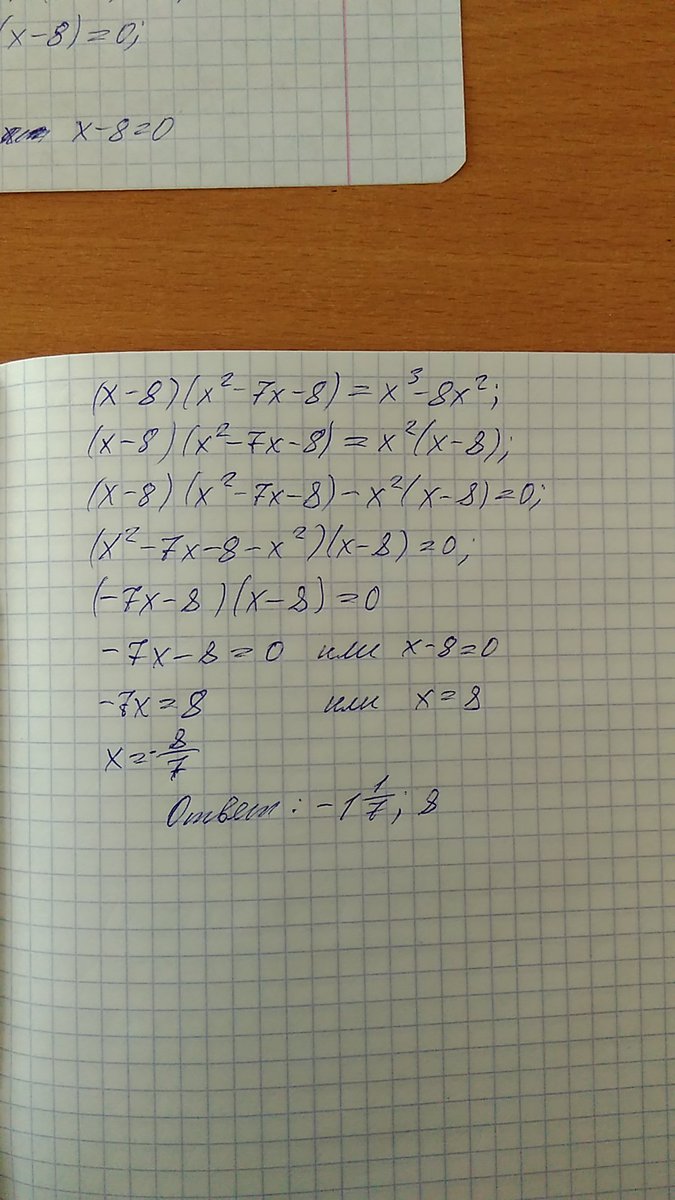 (x-8)=0;
x-8=0
(x-8)(x²-7x-8)=x³-8x²;
(x-8)(x²-7x-8)=x²(x-8);
(x-8)(x²-7x-8)-x²(x-8)=0;
(x²-7x-8-x²)(x-8)=0;
(-7x-8)(x-8)=0
-7x-8=0 или x-8=0
-7x=8 или x=8
x=-8/7
Ответ: -1 1/7; 8